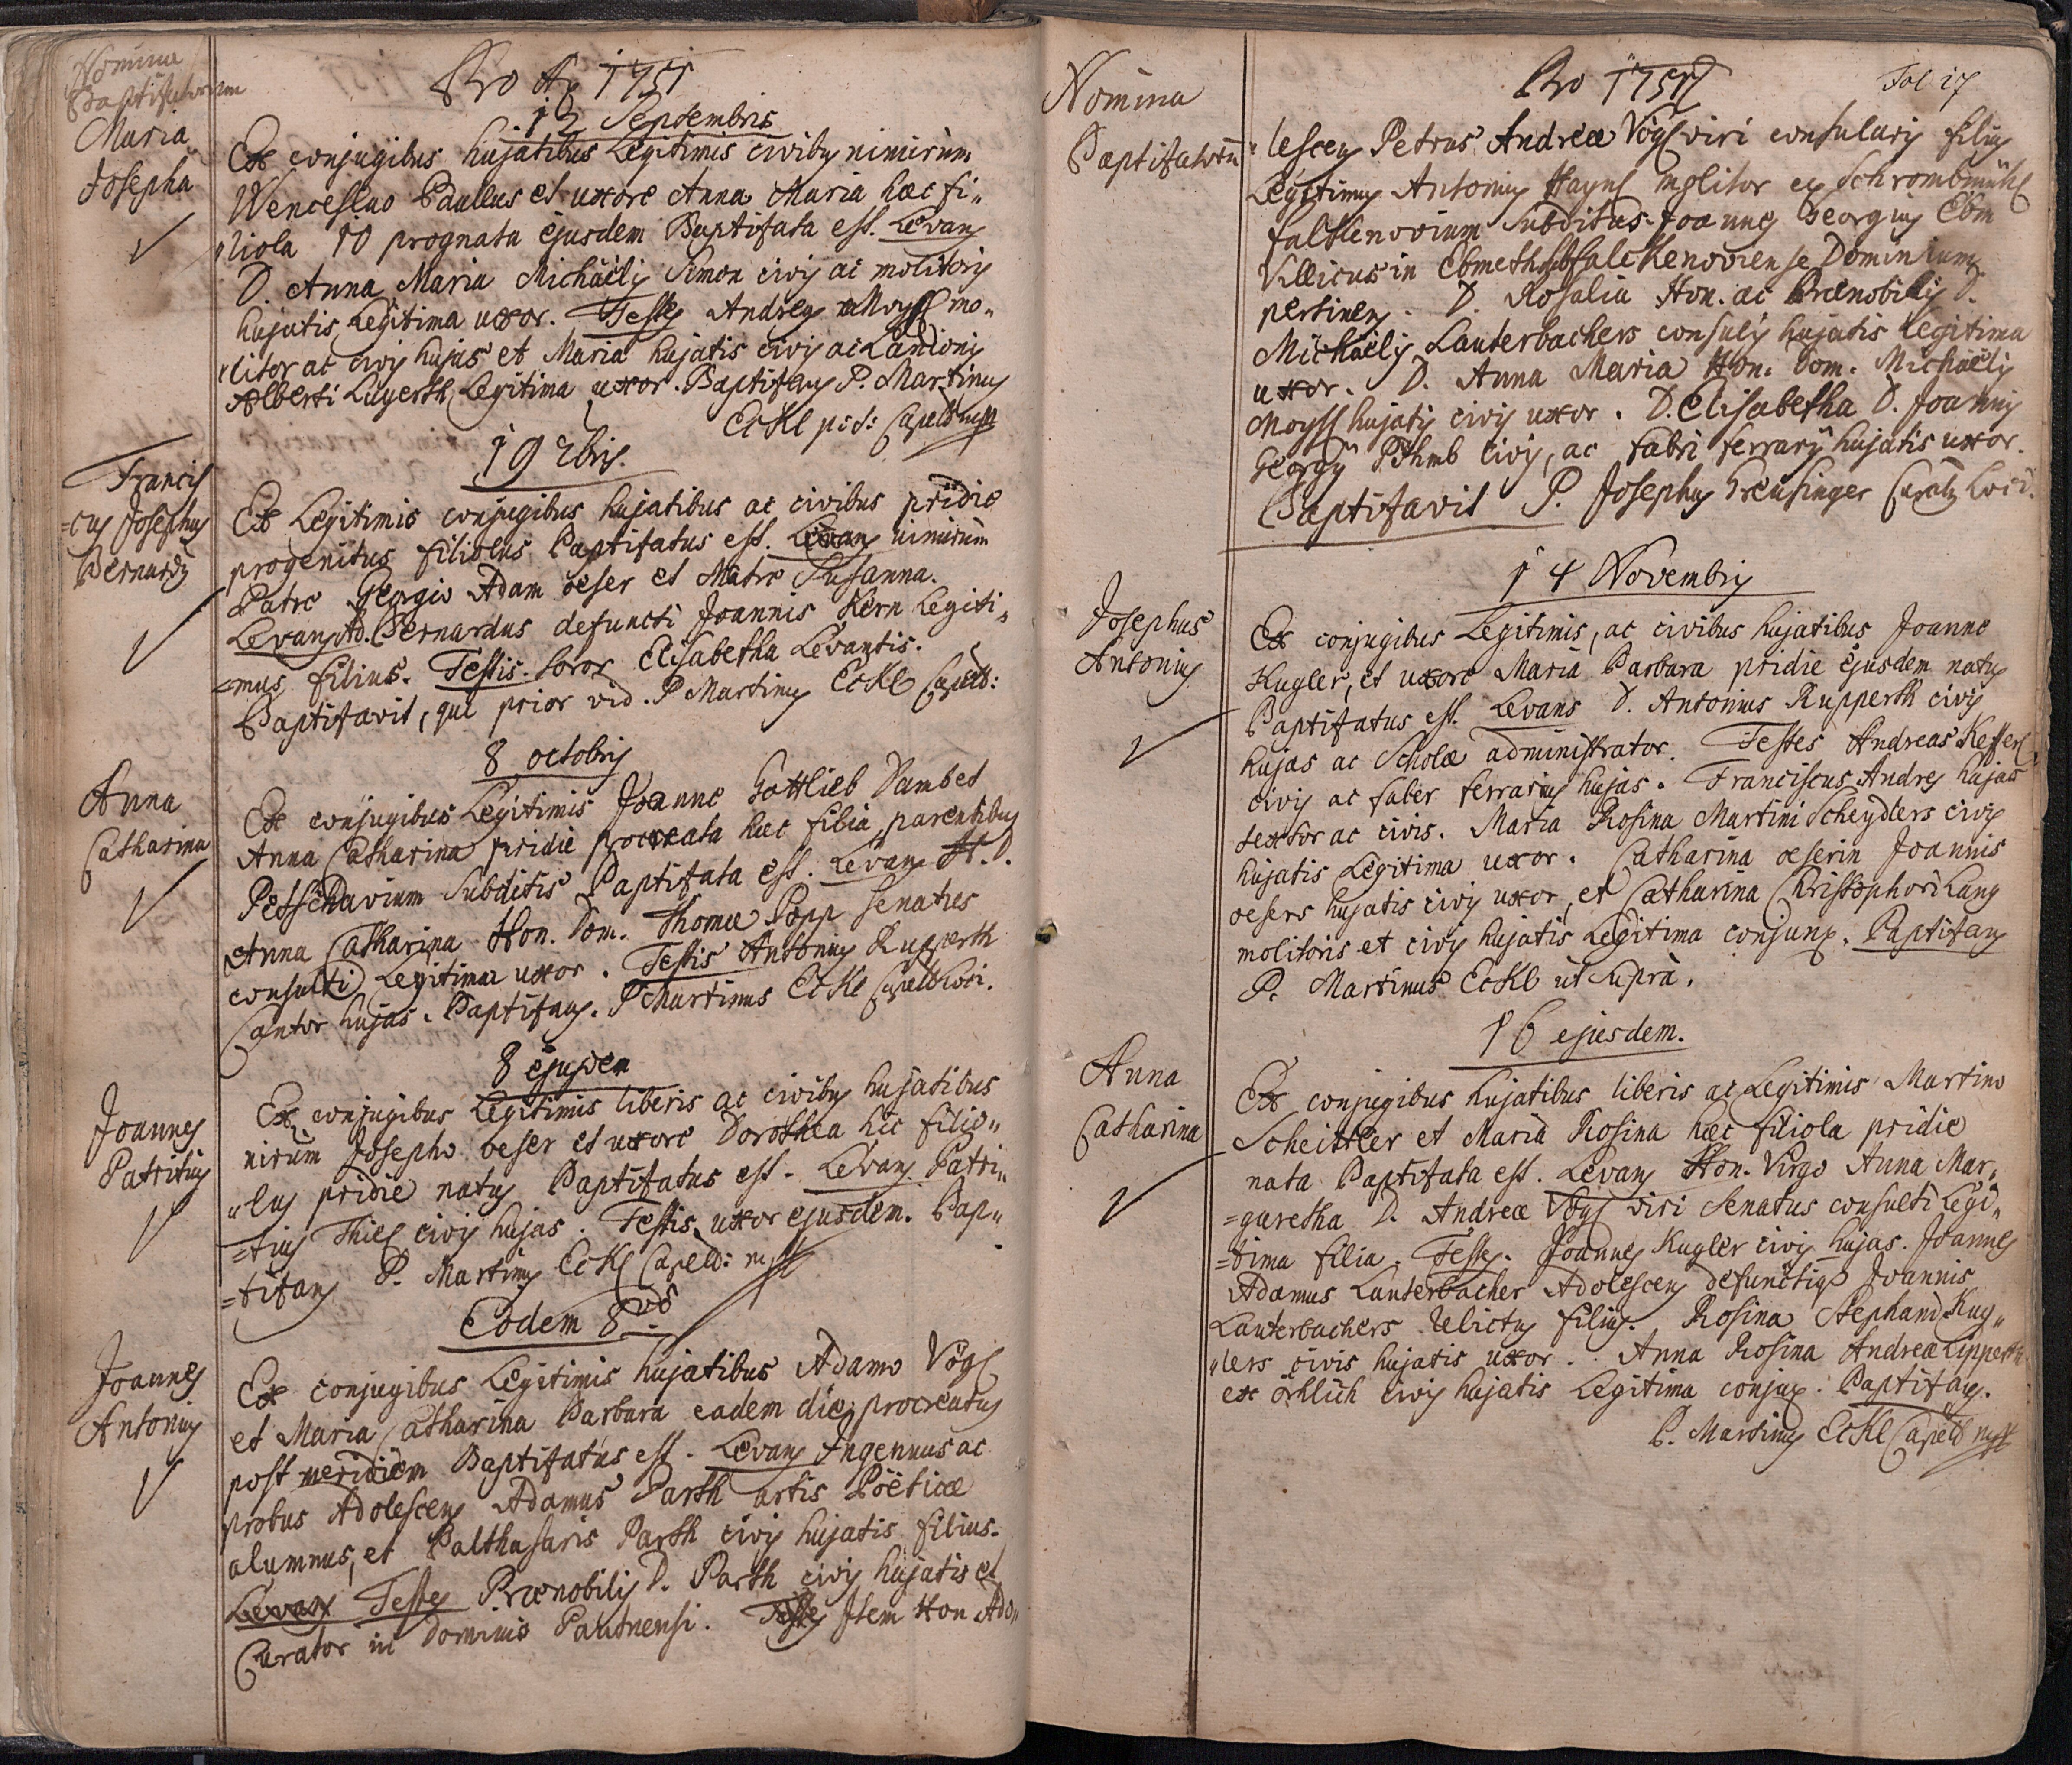 Nomina
Baptisatorum
Pro Ao 1751
12 Septembris
Maria
Josepha
Ex conjugibus hujatibus Legitimis civiby nimirum
Wenceslao Paullus et uxore Anna Maria hæc fi„
„liola 10 prognata ejusdem Baptisata est. Levans
D. Anna Maria Michäely Simon civis ac molitoris
hujatis Legitima uxor. Testes Andreas Moyss mo„
„litor ac civis hujas et Maria hujatis civis ac Lanionis
Alberti Lugerth Legitima uxor. Baptisans P. Martinus
Eckl p:t: Capeld mpp
19 7bris.
Francis
=cus Josephus
Bernardy
Ex Legitimis conjugibus hujatibus ac civibus pridie
progenitus filiolus Baptisatus est. Levans nimirum
Patre Georgio Adam oeser et Matre Susanna.
Levans Ad. Bernardus defuncti Joannis Kern Legiti„
=mus filius. Testis. soror Elisabetha Levantis.
Baptisavit, qui prior vid. P Martinus Eckl Capell:
8 octobris
Anna
Catharina
Ex conjugibus Legitimis Joanne Gottlieb Dambet
Anna Catharina pridie procreata hæc filia, parentibus
Petschavium subditis Baptisata est. Levans H. D.
Anna Catharina Hon. Dom. Thomæ Popp senatus
consulti Legitima uxor. Testis Antonius Rupperth
Cantor hujas. Baptisans. P Martinus Eckl Capell Loci.
8 ejusdem
Joannes
Patritius
Ex conjugibus Legitimis liberis ac civiby hujatibus
nirum Josepho oeser et uxore Dorothea hic filio„
„lus pridie natus Baptisatus est. Levans Patri„
=tius Thiel civis hujas. Testis uxor ejusdem. Bap„
=tisans P. Martinus Eckl Capeld: mpp
Eodem 8vo
Joannes
Antonius
Ex conjugibus Legitimis hujatibus Adamo Vögl
et Maria Catharina Barbara eadem die procreatus
post meridiem Baptisatus est. Levans Ingenuus ac
probus Adolescens Adamus Parth artis Poëticæ
alumnus, et Balthasaris Parth civis hujatis filius.
Levans Testes Prænobilis D. Parth civis hujatis et
Curator in Dominio Pautnensi. Testes Item Hon Ado„
Nomina
Baptisatorū
Pro 1751
Fol 17
„lescens Petrus Andreæ Vögl viri consularis filius
Legitimus Antonius Haynl molitor ex Schrombmühl
falkenovium subditus. Joannes Georgius Ebm
Villicus in Ebmeth sub falckenoviense Dominium
pertinens. D. Rosalia Hon. ac Prænobilis D.
Michäelis Lauterbachers consulis hujatis Legitima
uxor. D. Anna Maria Hon. Dom. Michäelis
Moyssl hujatis civis uxor. D. Elisabetha D. Joannis
Georgÿ Böhmb civis, ac fabri ferrarÿ hujatis uxor.
Baptisavit P. Josephus Greusinger Curatus Loci.
14 Novembris
Josephus
Antonius
Ex conjugibus Legitimis, ac civibus hujatibus Joanne
Kugler, et uxore Maria Barbara pridie ejusdem natus
Baptisatus est. Levans D. Antonius Rupperth civis
hujas ac Scholæ administrator. Testes Andreas Kesserl
civis ac faber ferrarius hujas. Franciscus Andres hujas
textor ac civis. Maria Rosina Martini Scheydlers civis
hujatis Legitima uxor. Catharina oeserin Joannis
oesers hujatis civis uxor, et Catharina Christophori Lang
molitoris et civis hujatis Legitima conjunx. Baptisans
P. Martinus Eckl ut supra.
16 ejusdem.
Anna
Catharina
Ex conjugibus hujatibus liberis ac Legitimis Martino
Scheitler et Maria Rosina hæc filiola pridie
nata Baptisata est. Levans Hon. Virgo Anna Mar„
=garetha D. Andreæ Vögl viri Senatus consulti Legi„
=tima filia. Testes. Joannes Kugler civis hujas. Joannes
Adamus Lauterbacher Adolescens defunctiq Joannis
Lauterbachers relictus filius. Rosina Stephani Kug„
„lers civis hujatis uxor. Anna Rosina Andreæ Lippert
ex örhlich civis hujatis Legitima conjux. Baptisans.
P. Martinus Eckl Capeld mpp